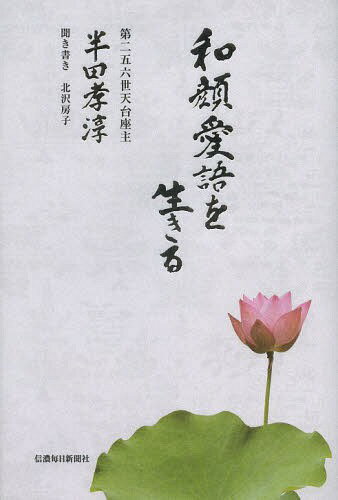 和顔愛語を
生きる
第二五六世天台座主
半田孝淳
聞き書き 北沢房子
信濃毎日新聞社